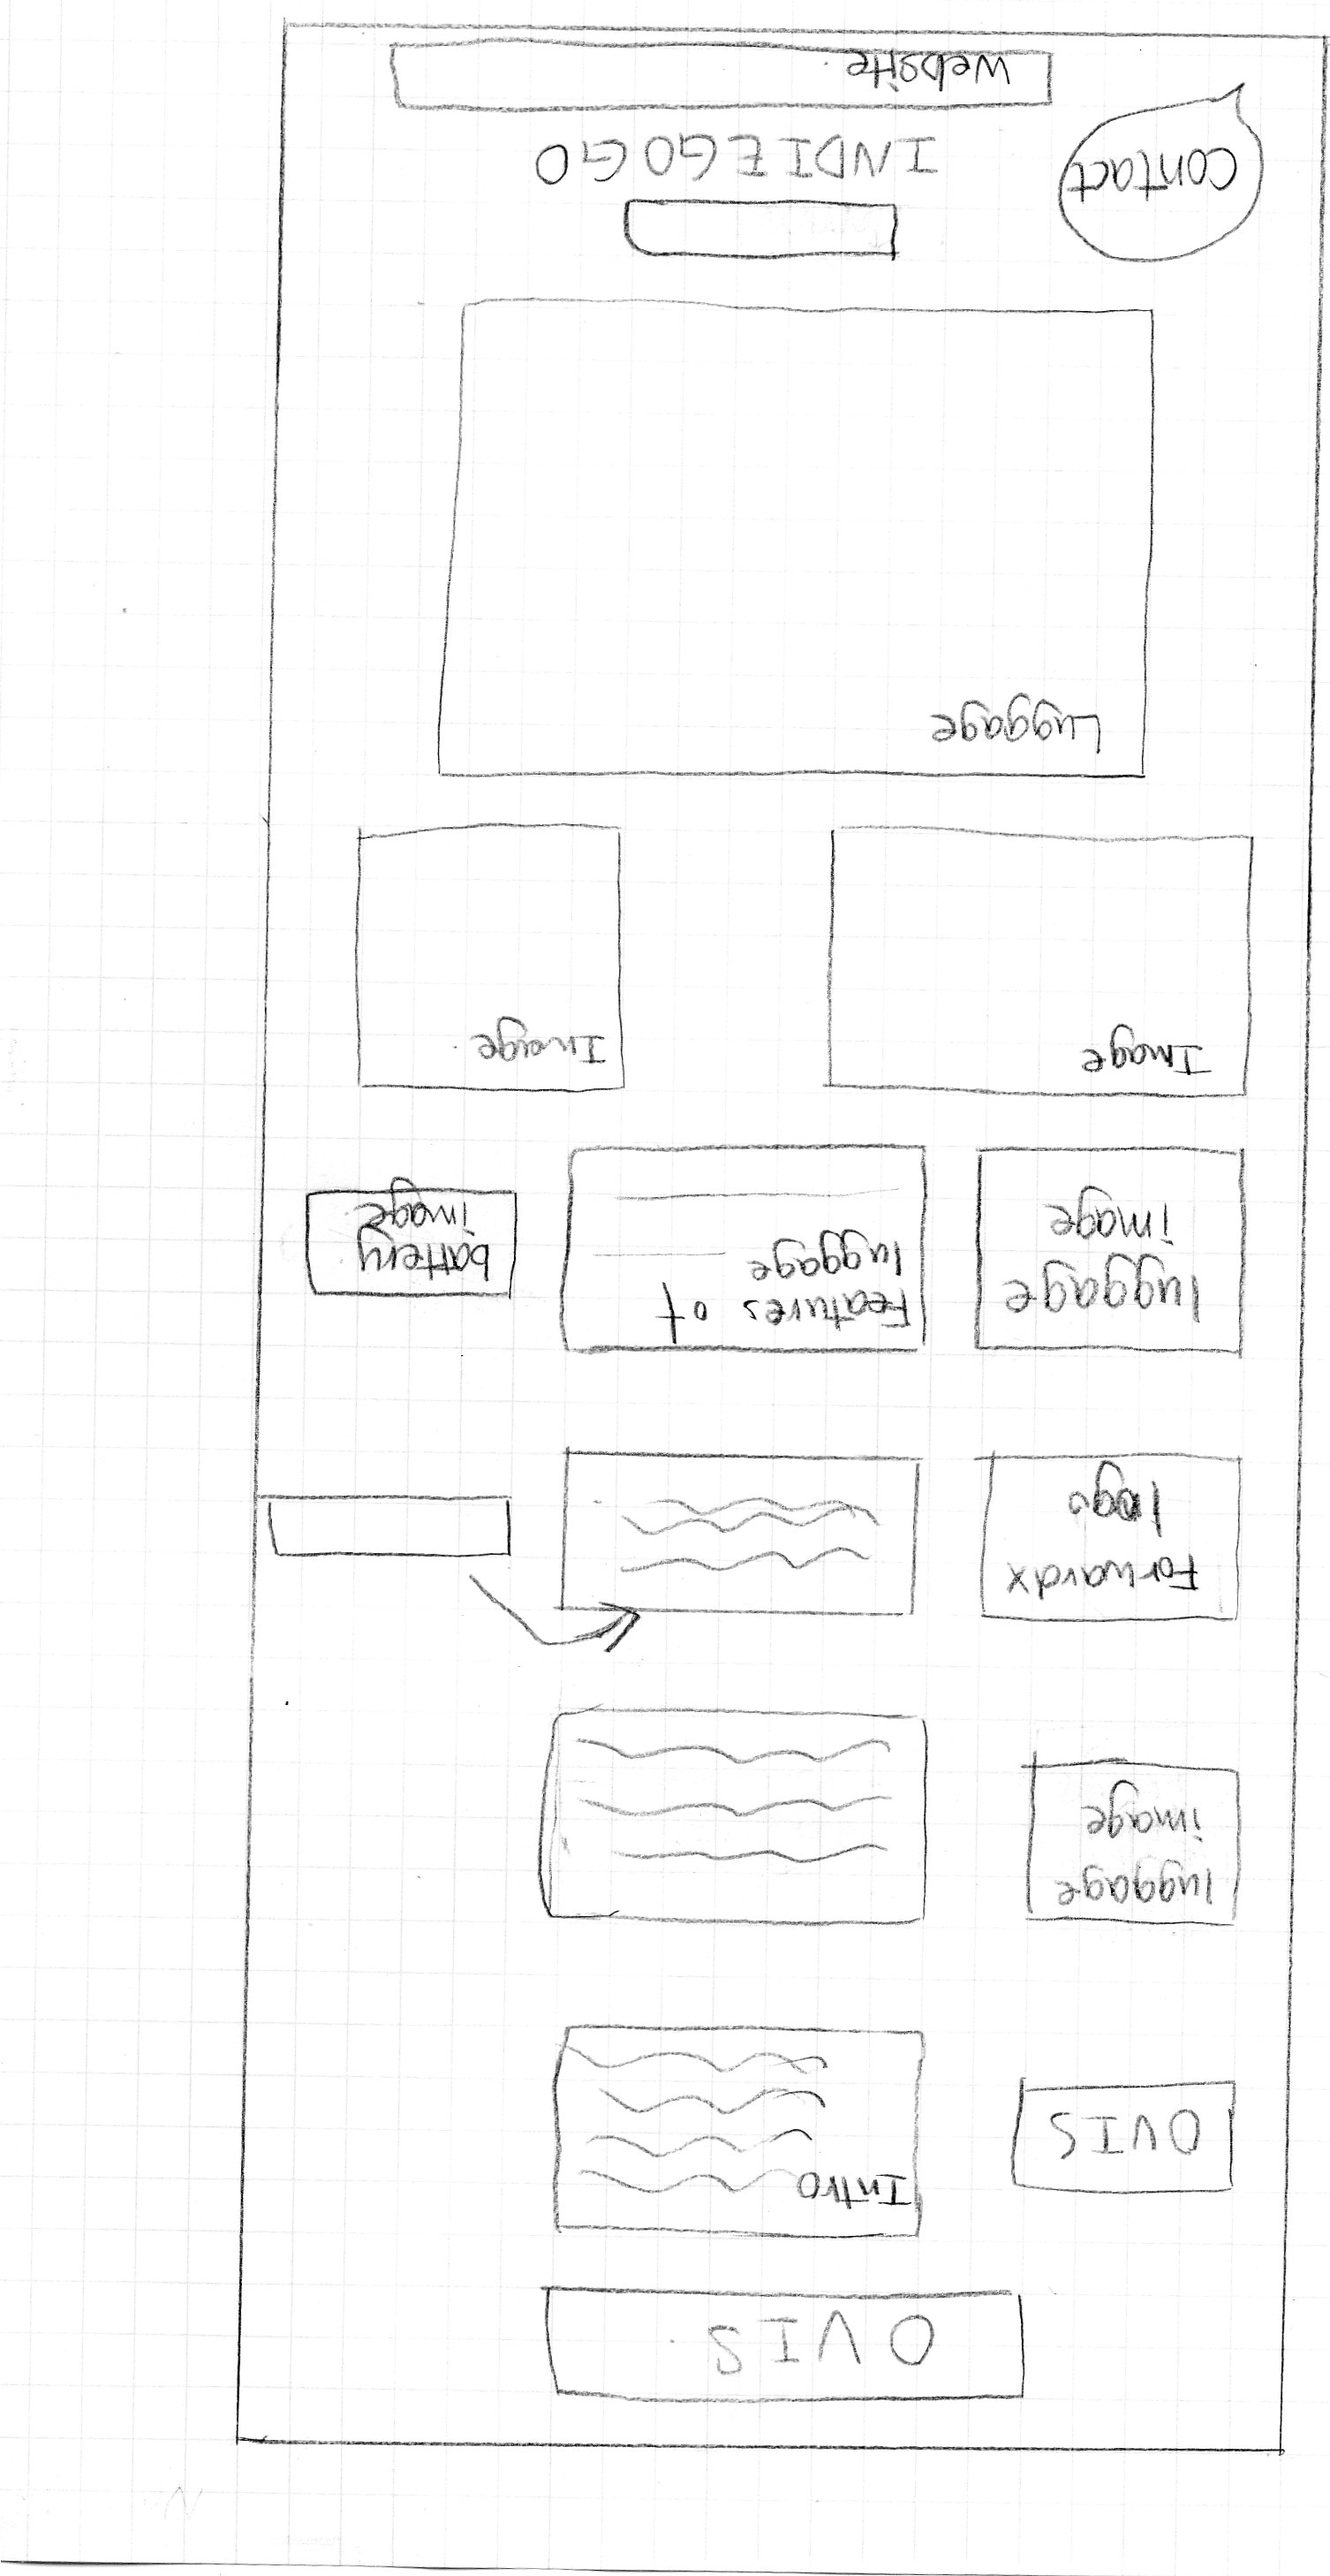 OVIS.
OVIS
Intro
luggage
image
Forwardx
logo
luggage
image
Features of
luggage
battery
image.
Image
Image.
Luggage
Contact
INDIEGOGO
Website.